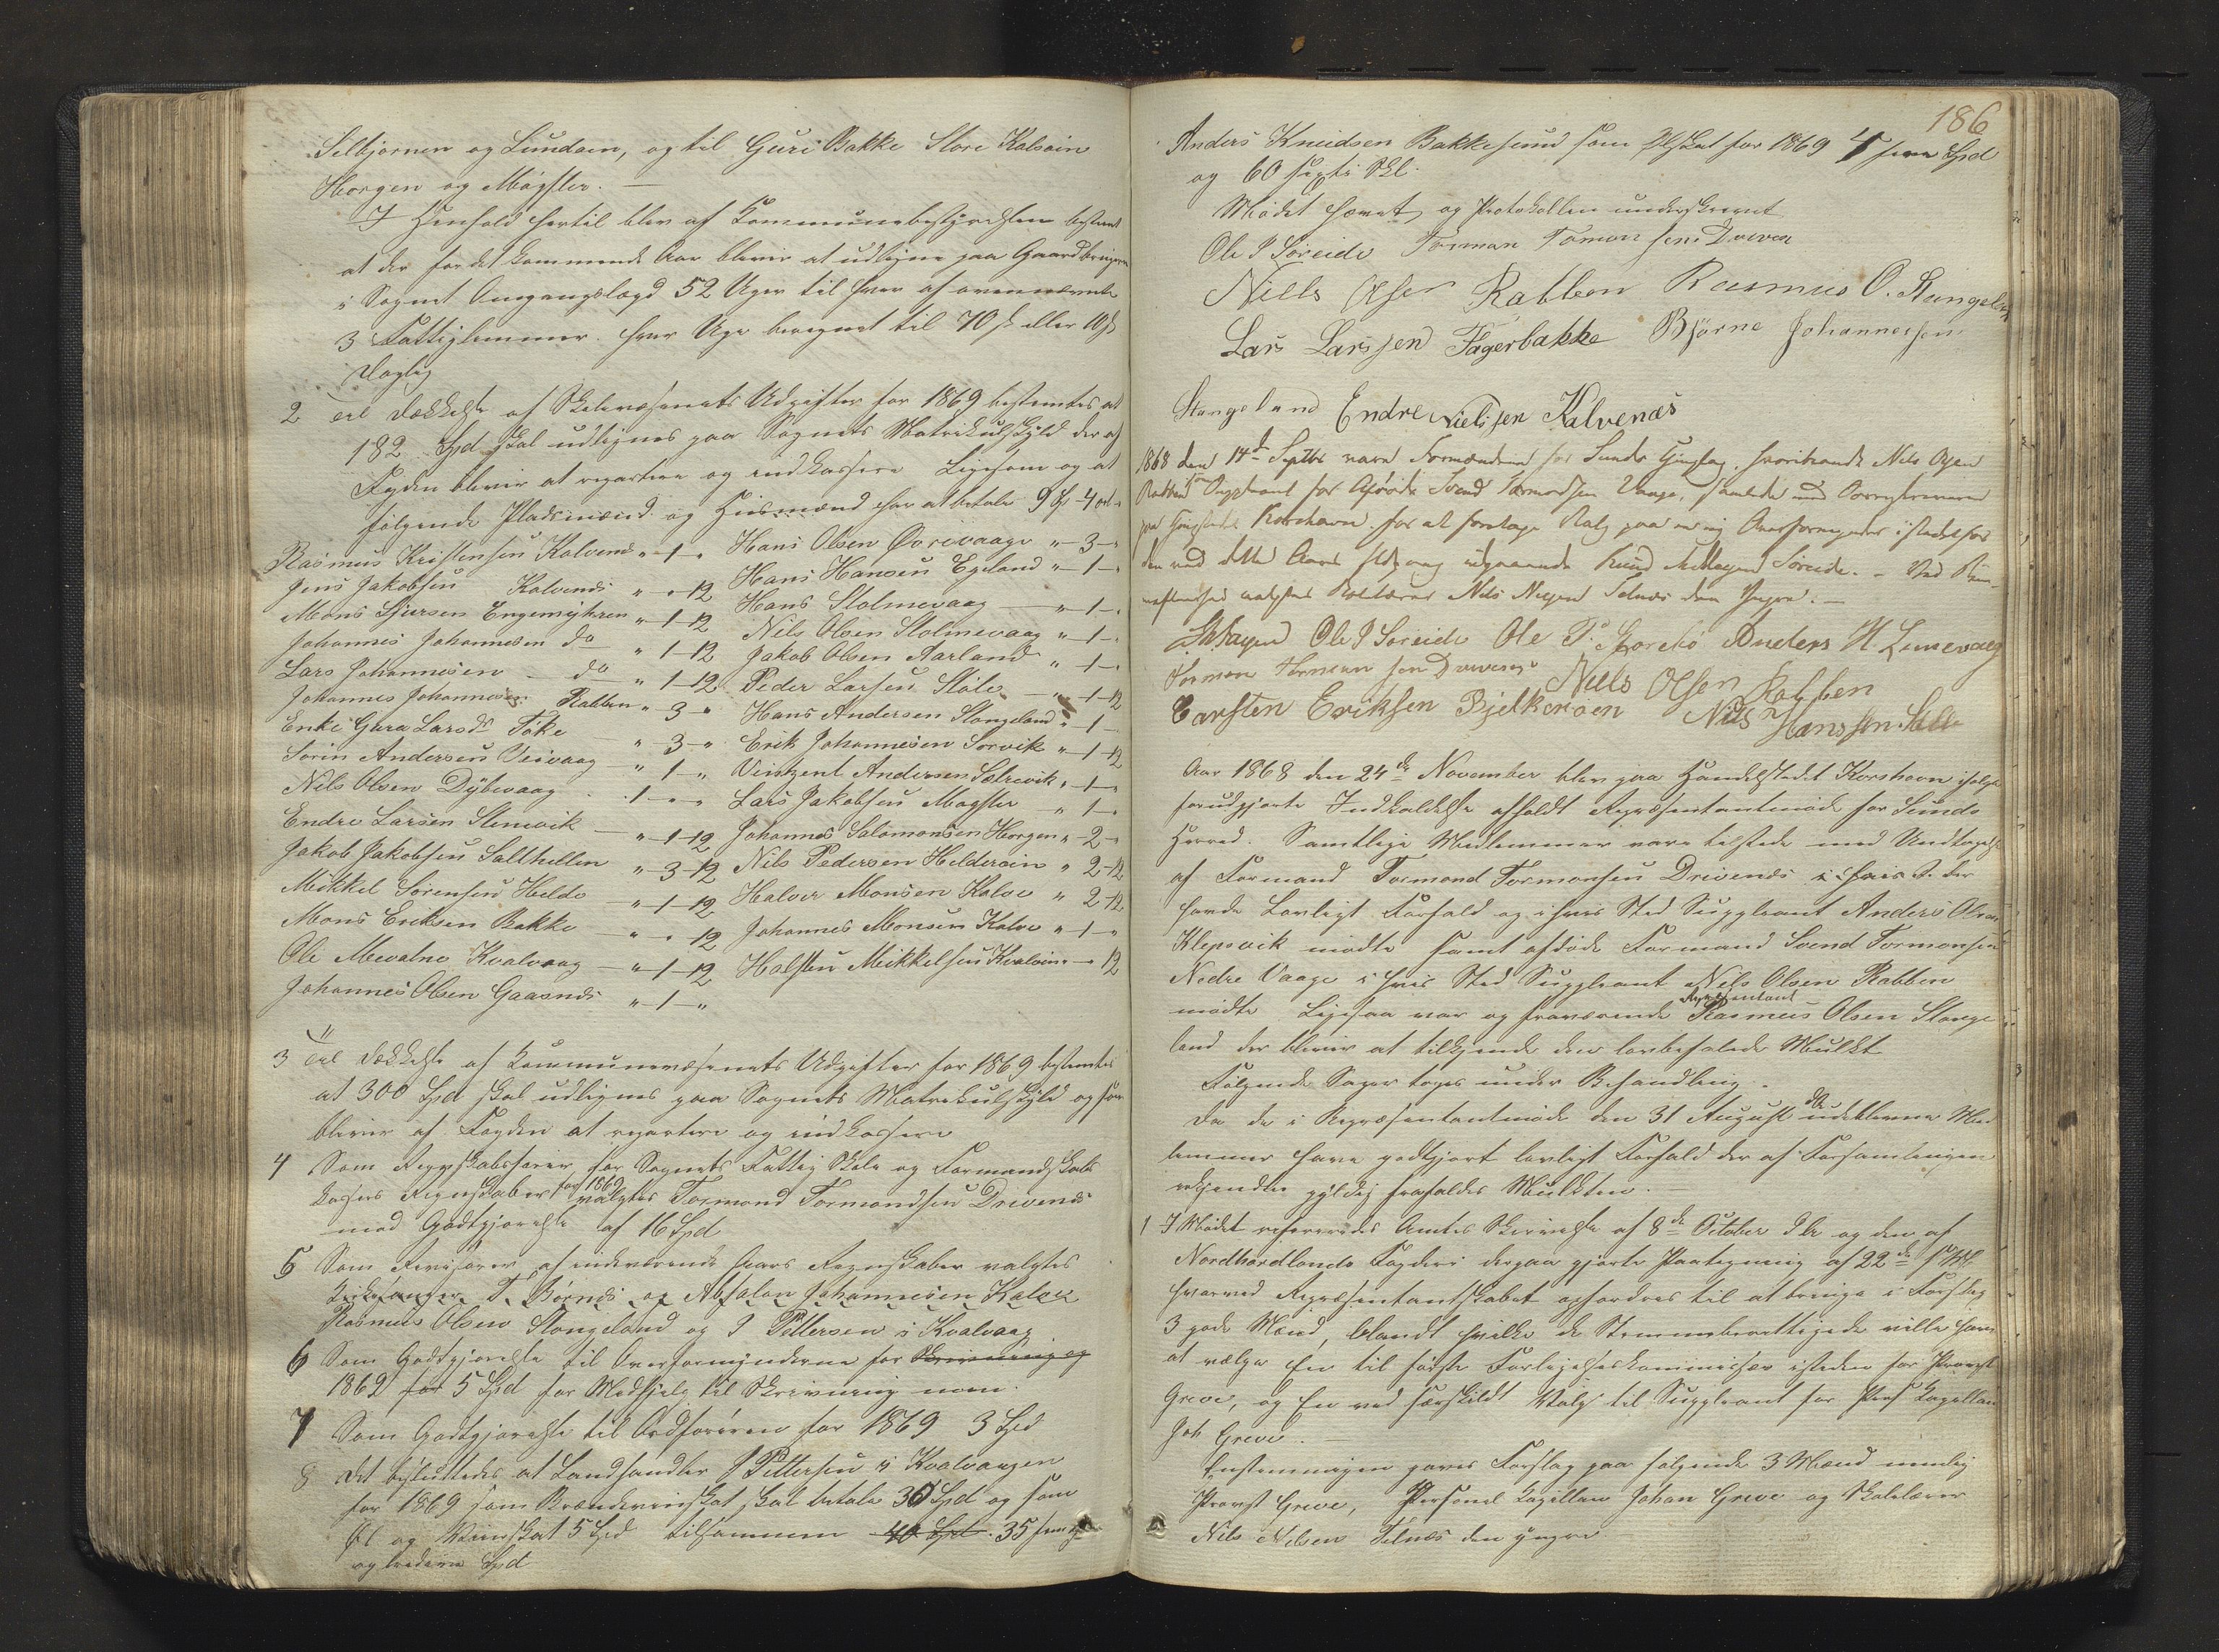 Selbjørnen og Lunden, og til Guri Bakke Store Kalsøin
Horgen og Møgster. —
I Henhold hertil blev af Kommunebestyrelsen bestemt
at der for det kommende Aar bliver at udligne paa Gaardbrugerne
i Sognet Omgangslægd 52 Uger til hver af ovennævnte
3 Fattiglemmer. hver Uge beregnet til 70 sk eller 10 sk
daglig
2 Til Dækkelse af Skolevæsenets Udgifter for 1869 bestemtes at
182 Spd skal udlignes paa Sognets Matrikulskyld der af
Fogden bliver at repartere og indkassere Ligesom og at
følgende Pladsmænd og Huusmænd har at betale 9
Rasmus Kristensen Kalvenæs " - 1 - " Hans Olsen Øvrevaage " - 3 - "
Jens Jakobsen Kalvenæs " - " - 12 Hans Hansen Egeland " - 1 - "
Mons Sjursen Engemyhren " - 1 - 12 Hans Stolmevaag " - 1 - "
Johannes Johannesen do " 1 - 12 Nils Olsen Stolmevaag " - 1 - "
Lars Johannesen - do " 1 - 12 Jakob Olsen Aarland " - 1 - "
Johannes Johannesen Rabben " - 3 - " Peder Larsen Støle - " - 1 - 12
Enke Guro Larsdr Føke " - 3 - " Hans Andersen Stangeland " - 1 -
Sørin Andersen Veivaag - " 1 - " Erik Johannesen Sørvik " - 1 - 12
Nils Olsen Dybevaag . 1 - " " Vintzent Andersen Sætrevik " - 1 - "
Endre Larsen Stenevik - " - 1 - 12 Lars Jakobsen Møgster - " 1 - "
Jakob Jakobsen Salthellen " - 3 - 12 Johannes Salomonsen Horgen " - 2 - "
Mikkel Sørensen Helde - " - 1 - 12 Nils Pedersen Helderøin " 2 - 12
Mons Eriksen Bakke - " " 12 Halvor Monsen Kalve " 2 - 12
Ole Mevatne Kvalvaag - " - 1 - 12 Johannes Monsen Kalve " - 1 - "
Johannes Olsen Gaasnæs " - 1 - " Holsten Mikkelsen Kvaløin " - " 12
3 Til Dækkelse af Kommunevæsenets Udgifter for 1869 bestemtes
at 300 Spd skal udlignes paa Sognets Matrikulskyld og som
bliver af Fogden at repartere og indkassere
4 Som Regnskabsfører for Sognets Fattig Skole og Formandskabs
kasses Regnskaber for 1869 valgtes Tormond Tormondsen Drivenæs
mod Godtgjørelse af 16 Spd
5 Som Revisorer af indeværende Aars Regnskaber valgtes
Kirkesanger T. Børnæs og Absalon Johannesen Kalve
Rasmus Olsen Stangeland og J Pettersen i Kvalvaag
6 Som Godtgjørelse til Overformynderne for Skrivning og
1869 for 5 Spd for Medhjelp til Skrivning mm.
7 Som Godtgjørelse til Ordføreren for 1869 3 Spd
8 Det besluttedes at Landhandler J Pettersen i Kvalvaagen
for 1869 som Brændevinskat skal betale 30 Spd og som
Øl og Vinskat 5 Spd tilsammen 40 Spd. 35 fem
og tredive Spd
186
Anders Knudsen Bakkesund som Ølskat for 1869 4 fire Spd
og 60 sexti Skl.
Mødet hævet og Protokollen underskrevet
Ole J Søreide Tormon Tormonsen Drivenes
Niels Olsen Rabben Rasmus O. Stangeland
Lars Larssen Fagerbakke Bjørne Johannessen
Stangeland Endre Nielssen Kalvenæs
1868 den 14de Septbr vare Formændene for Sunds Thinglag, hvoriblandt Nils Olsen
Rabben som Suppleant for afdøde Svend Tormodsen Vaage, samlede med Overøvrigheden
paa Thingstedet Korshavn for at foretage Valg paa en ny Overformynder istedetfor
den ved dette Aars Udgang udgaaende Knud Søreide. - Ved Stem
valgtes Skolelærer Nils Nilsen Telnæs den Yngre. -
Ole J Søreide Ole P. Storekø Anders H. Lunevaag
Tormon Tormonsen Drivenes Niels Olsen Rabben
Carsten Eriksen Bjelkerøen Nils Hanssen
Aar 1868 den 24de November blev paa Handelsstedet Korshavn ifølge
forudgjorte Indkaldelse afholdt Repræsentantmøde for Sunds
Herred. Samtlige Medlemmer vare tilstede med Undtagelse
af Formand Tormond Tormonsen Drivenæs der
havde Lovligt Forfald og i hvis Sted Suppleant Anders Olsen
Klepsvik mødte samt afdøde Formand Svend Tormonsen
Nedre Vaage i hvis Sted Suppleant Nils Olsen Rabben
mødte. Ligesaa var og fraværende Repræsentant Rasmus Olsen Stange
land der bliver at tilkjende den lovbefalede Mulkt
Følgende Sager toges under Behandling.
Da de i Repræsentantmøde den 31 August da udeblevne Med
lemmer have godtgjort lovligt Forfald der af Forsamlingen
erkjendes gyldig frafaldes Mulkten.
1 I Mødet refereredes Amtets Skrivelse af 8de October d. A. og den af
Nordhordlands Fogderi derpaa gjorte Paategning af 22de s. M.
hvorved Repræsentantskabet opfordres til at bringe i Forslag
3 gode Mænd, blandt hvilke de Stemmeberettigede ville have
at vælge En til første Forligelseskommissær isteden for Provst
Greve, og En ved særskildt Valg til Suppleant for Pers. Kapellan
Joh Greve.
Enstemmigen gaves Forslag paa følgende 3 Mænd nemlig
Provst Greve, Personel Kapellan Johan Greve og Skolelærer
Nils Nilsen Telnæs den yngre